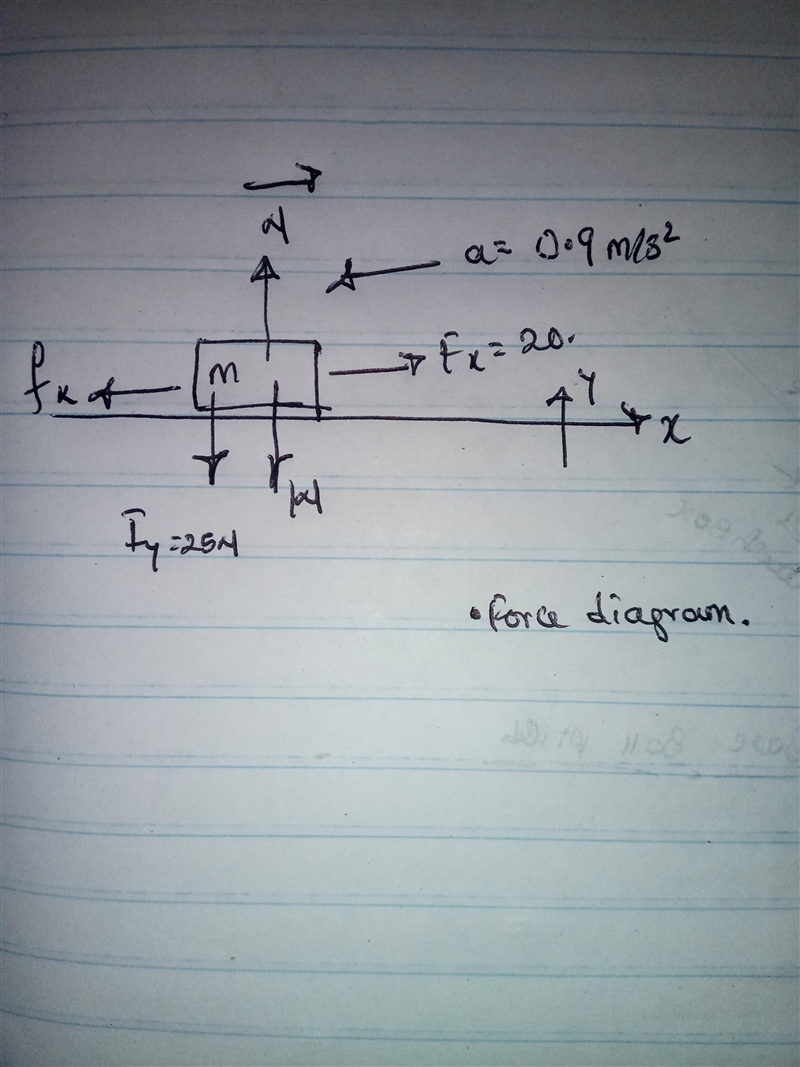 N
a = 0.9 m/s²
fk
m
Fx = 20.
y
x
Fy = 25N
• Force diagram.